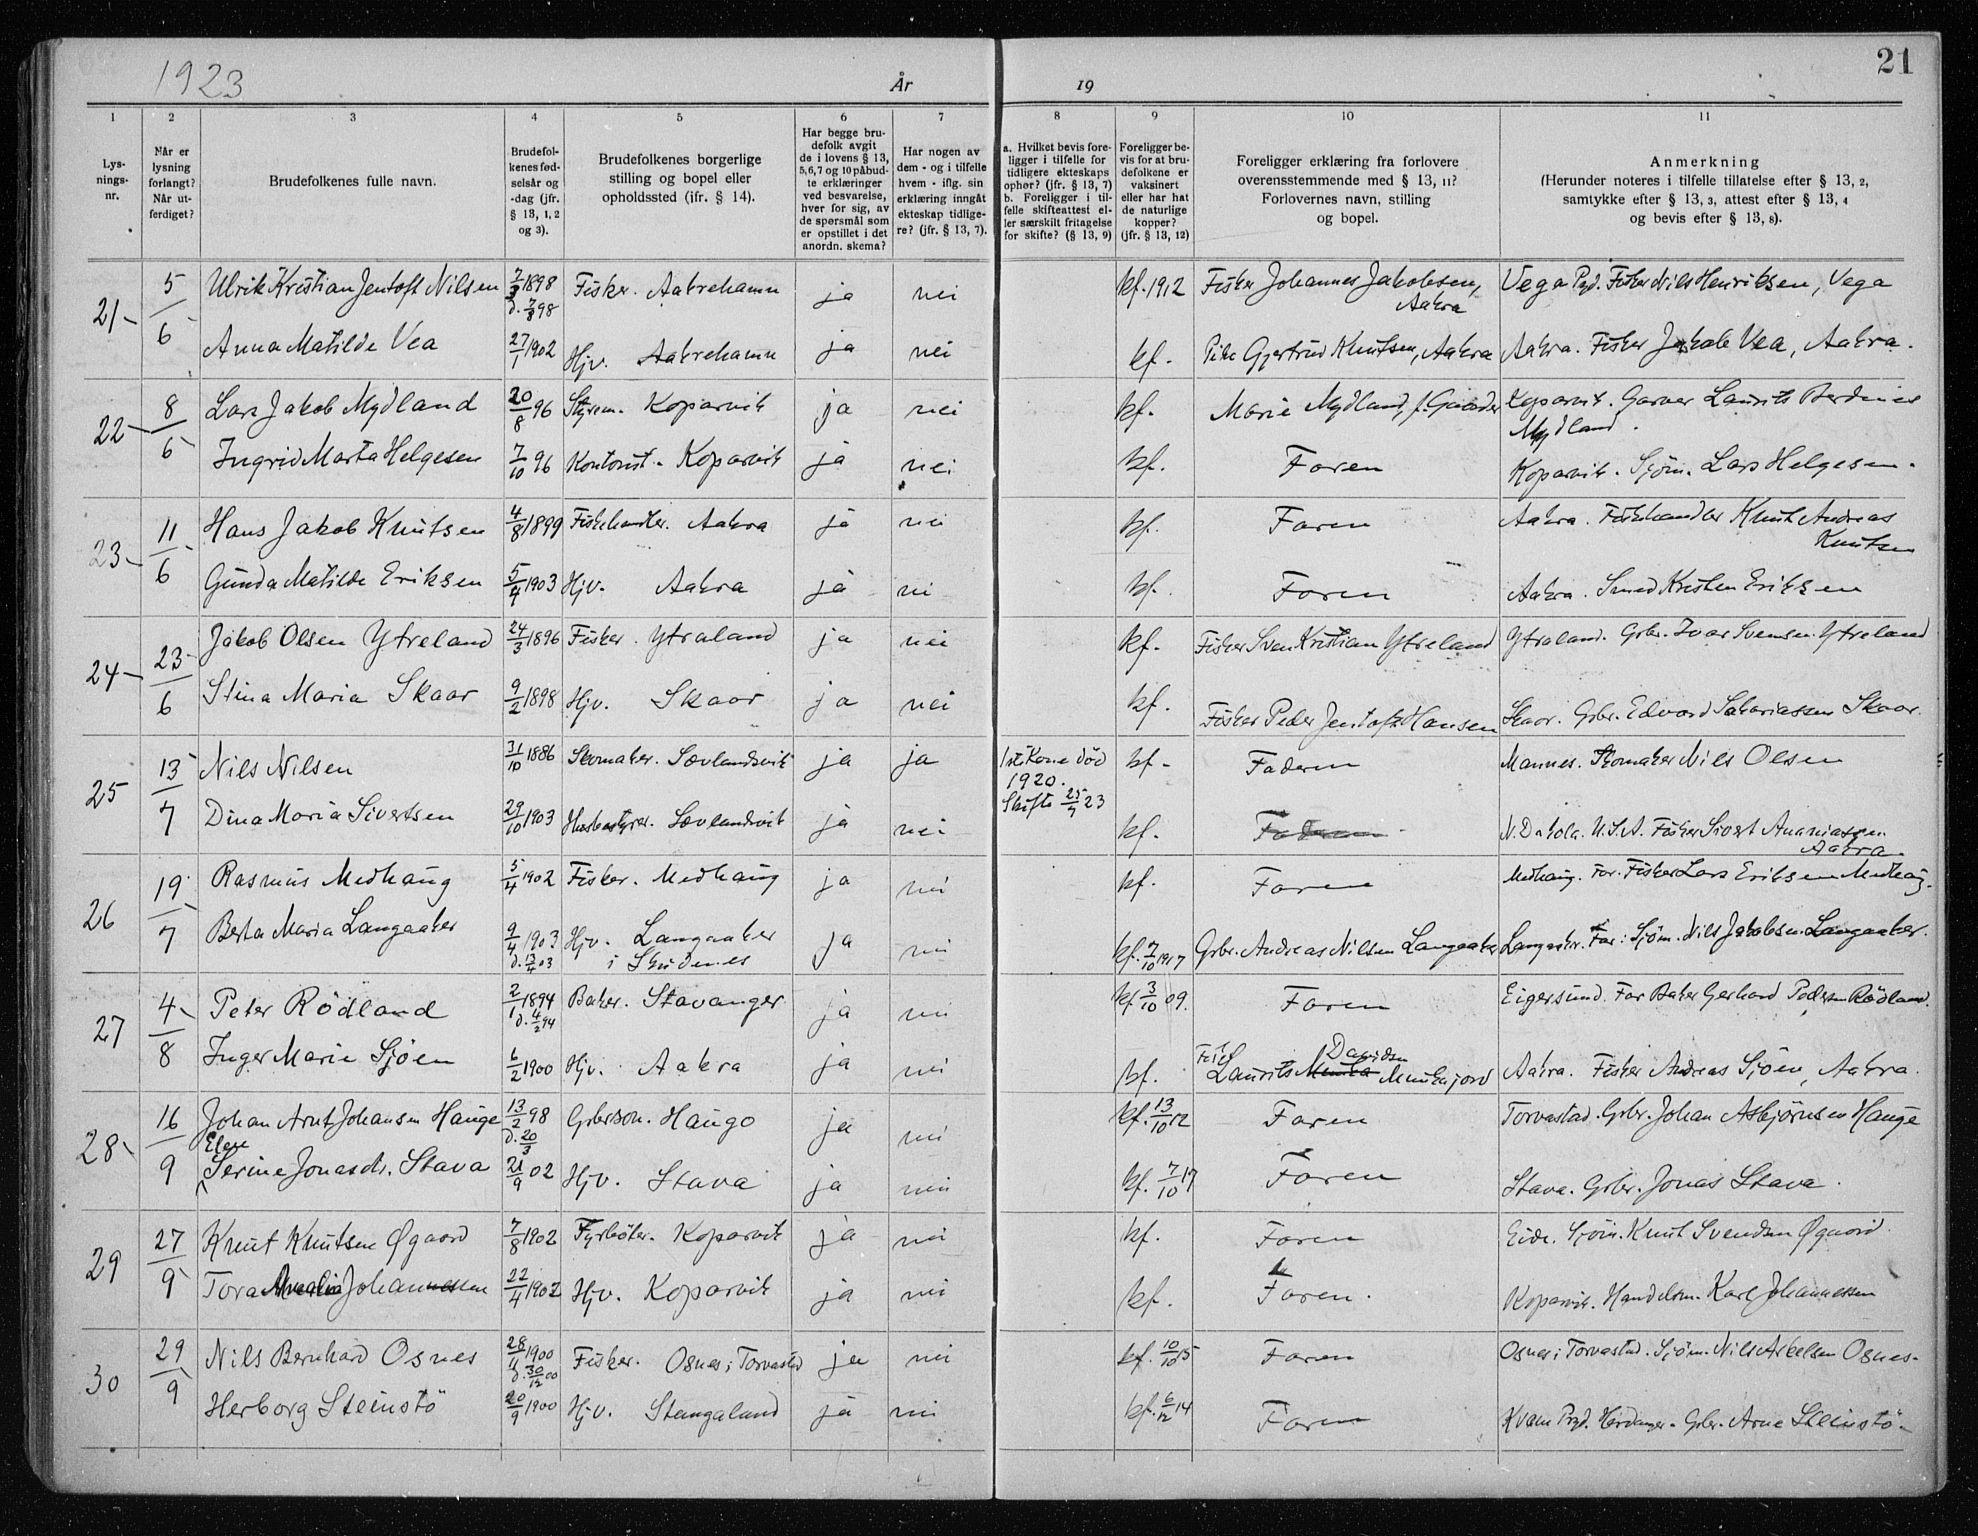 1923 År 19 21
1 2 3 4 5 6 7 8 9 10 11
Lys-
nings-
nr.
Når er
lysning
forlangt?
Når ut-
ferdiget?
Brudefolkenes fulle navn.
Brudefol-
kenes fød-
selsår og
-dag (jfr.
§ 13, 1, 2
og 3).
Brudefolkenes borgerlige
stilling og bopel eller
opholdssted (ifr. § 14).
Har begge bru-
defolk avgit
de i lovens § 13,
5,6,7 og 10 påbud-
te erklæringer
ved besvarelse,
hver for sig, av
de spørsmål som
er opstillet i det
anordn. skema?
Har nogen av
dem - og i tilfelle
hvem - iflg. sin
erklæring inngåt
ekteskap tidlige-
re? (jfr. § 13, 7).
a. Hvilket bevis fore-
ligger i tilfelle for
tidligere ekteskaps
ophør? (jfr. § 13, 7)
b. Foreligger i til-
felle skifteattest el-
ler særskilt fritagelse
for skifte? (§ 13, 9)
Foreligger be-
vis for at bru-
defolkene er
vaksinert
eller har hat
de naturlige
kopper?
(jfr. § 13, 12)
Foreligger erklæring fra forlovere
overensstemmende med § 13, 11?
Forlovernes navn, stilling
og bopel.
Anmerkning
(Herunder noteres i tilfelle tillatelse efter § 13, 2,
samtykke efter § 13, 3, attest efter § 13, 4
og bevis efter § 13, 8).
21 5/6 Ulrik Kristian Jentoft Nilsen 7/3 1898 d. 7/8 98 Fisker. Aakrehamn ja nei kf. 1912 Fisker Johannes Jakobsen, Aakra Vega Pgd. Fisker Nils Henriksen, Vega
Anna Matilde Vea 27/1 1902 Hjv. Aakrehamn ja nei kf. Pike Gjertrud Knutsen, Aakra Aakra. Fisker Jakob Vea, Aakra.
22 8/6 Lars Jakob Mydland 20/8 96 Styrm. Kopervik ja nei kf. Marie Mydland, Koparvik. Garver Laurits Berdines
Mydland.
Ingrid Marta Helgesen 7/10 96 Kontorist. Koparvik ja nei kf. Faren Koparvik. Sjøm. Lars Helgesen.
23 11/6 Hans Jakob Knutsen 4/8 1899 Fiskehandler. Aakra ja nei kf. Faren Aakra. Fiskehandler Knut Andreas
Knutsen
Gunda Matilde Eriksen 5/4 1903 Hjv. Aakra ja nei kf. Faren Aakra. Smed Kristen Eriksen
24 23/6 Jakob Olsen Ytreland 24/3 1896 Fisker. Ytraland ja nei kf. Fisker Sven Kristian Ytreland Ytraland. Grbr. Ivar Svensen Ytreland
Stina Maria Skaar 9/2 1898 Hjv. Skaar ja nei kf. Fisker Peder Jentoft Hansen Skaar. Grbr. Edvard Sakariassen Skaar.
25 13/7 Nils Nilsen 31/10 1886 Skomaker. Sævlandsvik ja ja 1ste Kone død
1920.
Skifte 25/7 23 kf. Faderen Mannes. Skomaker Nils Olsen
Dina Maria Sivertsen 29/10 1903 Husbestyrer. Sævlandsvik ja nei kf. Faderen N. Dakola. U.S.A. Fisker Sivert Ananiassen
Aakra.
26 19/7 Rasmus Medhaug 5/4 1902 Fisker. Medhaug ja nei kf. Faren Medhaug. Far. Fisker Lars Eriksen Medhaug.
Berta Maria Langaaker 9/4 1903 d. 13/4 03 Hjv. Langaaker
i Skudenes ja nei kf. 7/10 1917 Grbr. Andreas Nilsen Langaaker Langaaker. Far: Sjøm. Nils Jakobsen Langaaker.
27 4/8 Peter Rödland 2/1 1894 d. 4/2 94 Baker. Stavanger ja nei kf. 3/10 09. Faren Eigersund. Far Baker Gerhard Pedersen Rödland.
Inger Marie Sjöen 6/2 1900 Hjv. Aakra ja nei kf. Laurits Davidsen Munkejord Aakra. Fisker Andreas Sjöen, Aakra.
28 16/9 Johan Arnt Johansen Hauge 13/2 98 d. 20/3 Grbrsøn. Hauge ja nei kf. 13/10 12 Faren Torvastad. Grbr. Johan Asbjørnsen Hauge
Serine Jonasdr. Stava 21/9 02 Hjv. Stava ja nei kf. 7/10 17 Faren Stava. Grbr. Jonas Stava.
29 27/9 Knut Knutsen Øgaard 7/8 1902 Fyrbøter. Koparvik ja nei kf. Faren Eide. Sjøm. Knut Svendsen Øgaard.
Tora Amalia Johannessen 22/4 1902 Hjv. Koparvik ja nei kf. Faren. Koparvik. Handelsm. Karl Johannessen
30 29/9 Nils Bernhard Osnes 28/11 1900 d. 30/12 00 Fisker. Osnes i Torvastad ja nei kf. 10/10 15 Faren Osnes i Torvastad. Sjøm. Nils Askelsen Osnes.
Herborg Steinstö 20/9 1900 Hjv. Stangaland ja nei kf. 6/12 14 Faren Kvam Prgd. Hardanger. Grbr. Arne Steinstö.